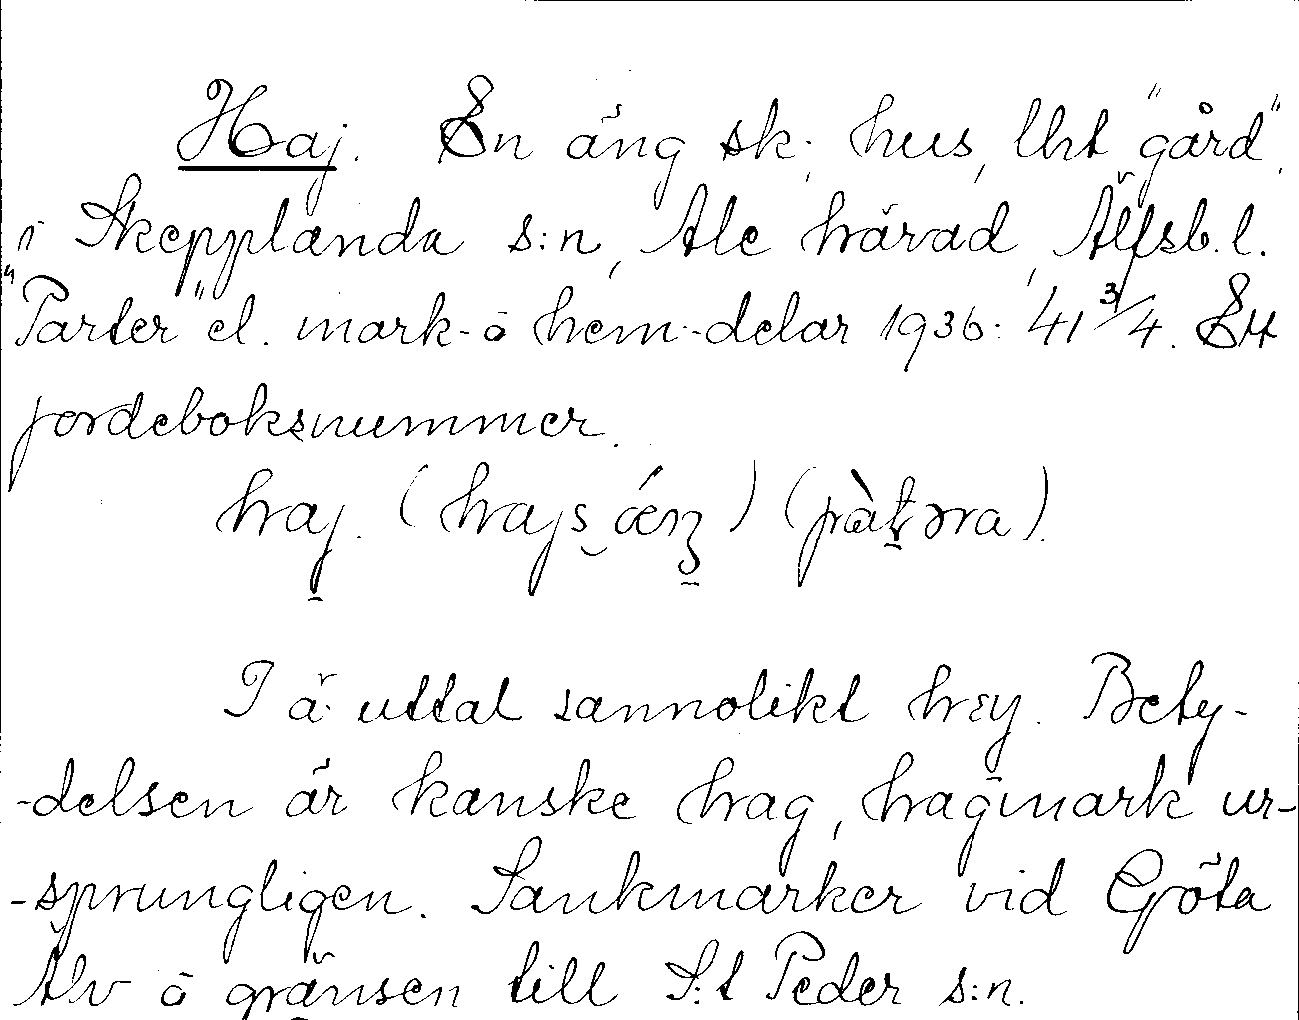 Haj. En äng sk. hus, Utrt "gård",
i Skepplanda s:n, Ale härad, Älfsb.l.
"Parter" el. mark- o hem.-delar 1936: 41 3/4. Ett
jordeboksnummer.
haj. (hajsǽnʒ) (pàtərа).
I ä. uttal sannolikt hɛy. Bety-
-delsen är kanske hag, hagmark ur-
-sprungligen. Sankmarker vid Göta
Älv o gränsen till S:t Peder s:n.